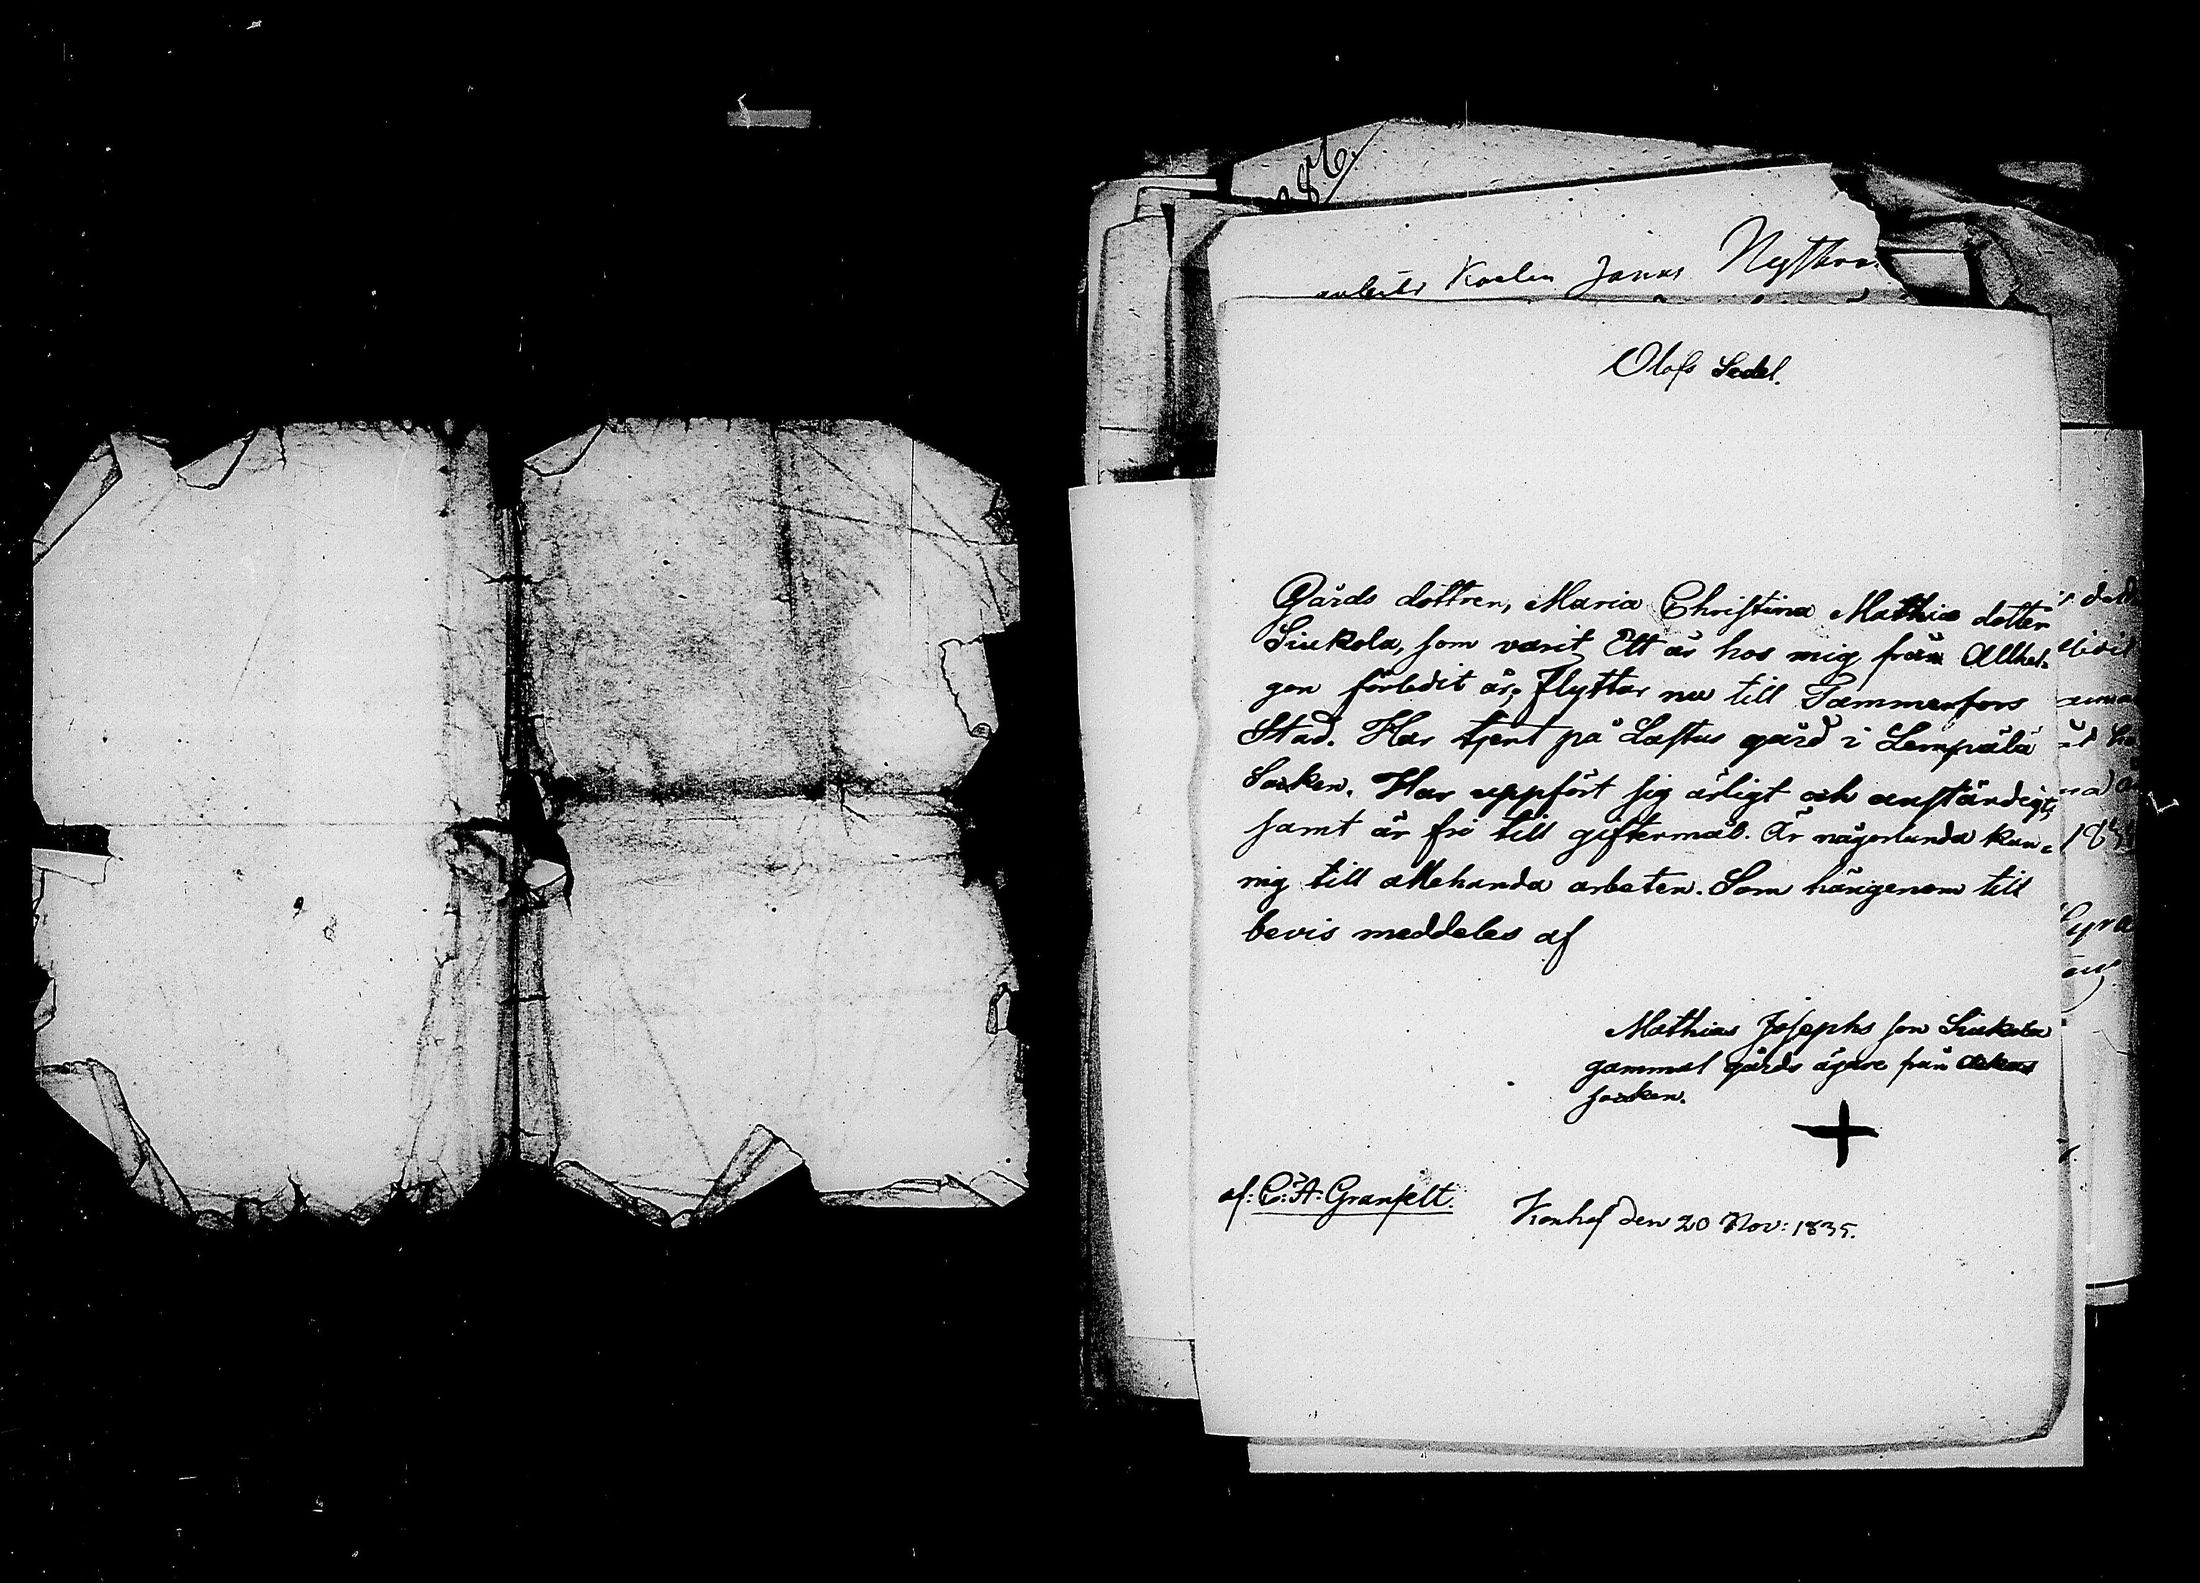 Jonas
Olofs Sedel.
Gårds dottren, Maria Christina Mathia dotter
Siukola, som varit Ett år hos mig från Allhel-
gon förledit år; Flyttar nu till Tammerfors
Stad. Har tjent på Lastus gård i Lempälä
Socken. Har uppfört sig ärligt och anständigt,
samt är fri till giftermål. Är någorlunda kun-
nig till allehanda arbeten. Som härigenom till
bevis meddeles af
Mathias Josephs son Siukola
gammal gårds ägare från Ackas
socken.
af: C: A: Granfelt.
Konhof den 20 Nov: 1835.